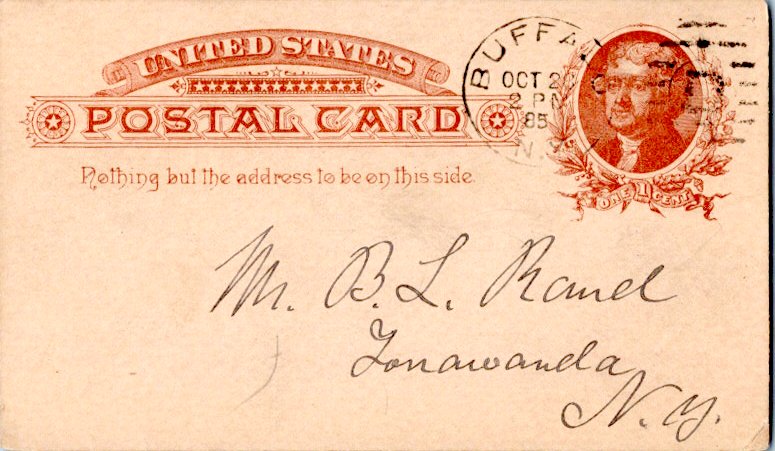 UNITED STATES
POSTAL CARD
Nothing but the address to be on this side.
BUFFA
OCT 2
2 PM
85
N.Y.
ONE 1 CENT
Mr. B. L. Rand
Tonawanda
N.Y.